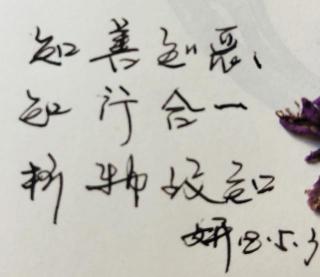 知善知恶、
知行合一
格物致知
妍.2.5.3